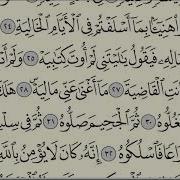 هَنِيٓـًٔۢا بِمَآ أَسۡلَفۡتُمۡ فِي ٱلۡأَيَّامِ ٱلۡخَالِيَةِ ٢٤
مَالِهِۦ فَيَقُولُ يَٰلَيۡتَنِي لَمۡ أُوتَ كِتَٰبِيَهۡ ٢٥ وَلَمۡ أَدۡرِ
كَانَتِ ٱلۡقَاضِيَةَ ٢٧ مَآ أَغۡنَىٰ عَنِّي مَالِيَهۡۜ ٢٨ هَلَكَ
فَغُلُّوهُ ٣٠ ثُمَّ ٱلۡجَحِيمَ صَلُّوهُ ٣١ ثُمَّ فِي سِلۡسِلَةٖ
ذِرَاعٗا فَٱسۡلُكُوهُ ٣٢ إِنَّهُۥ كَانَ لَا يُؤۡمِنُ بِٱللَّهِ